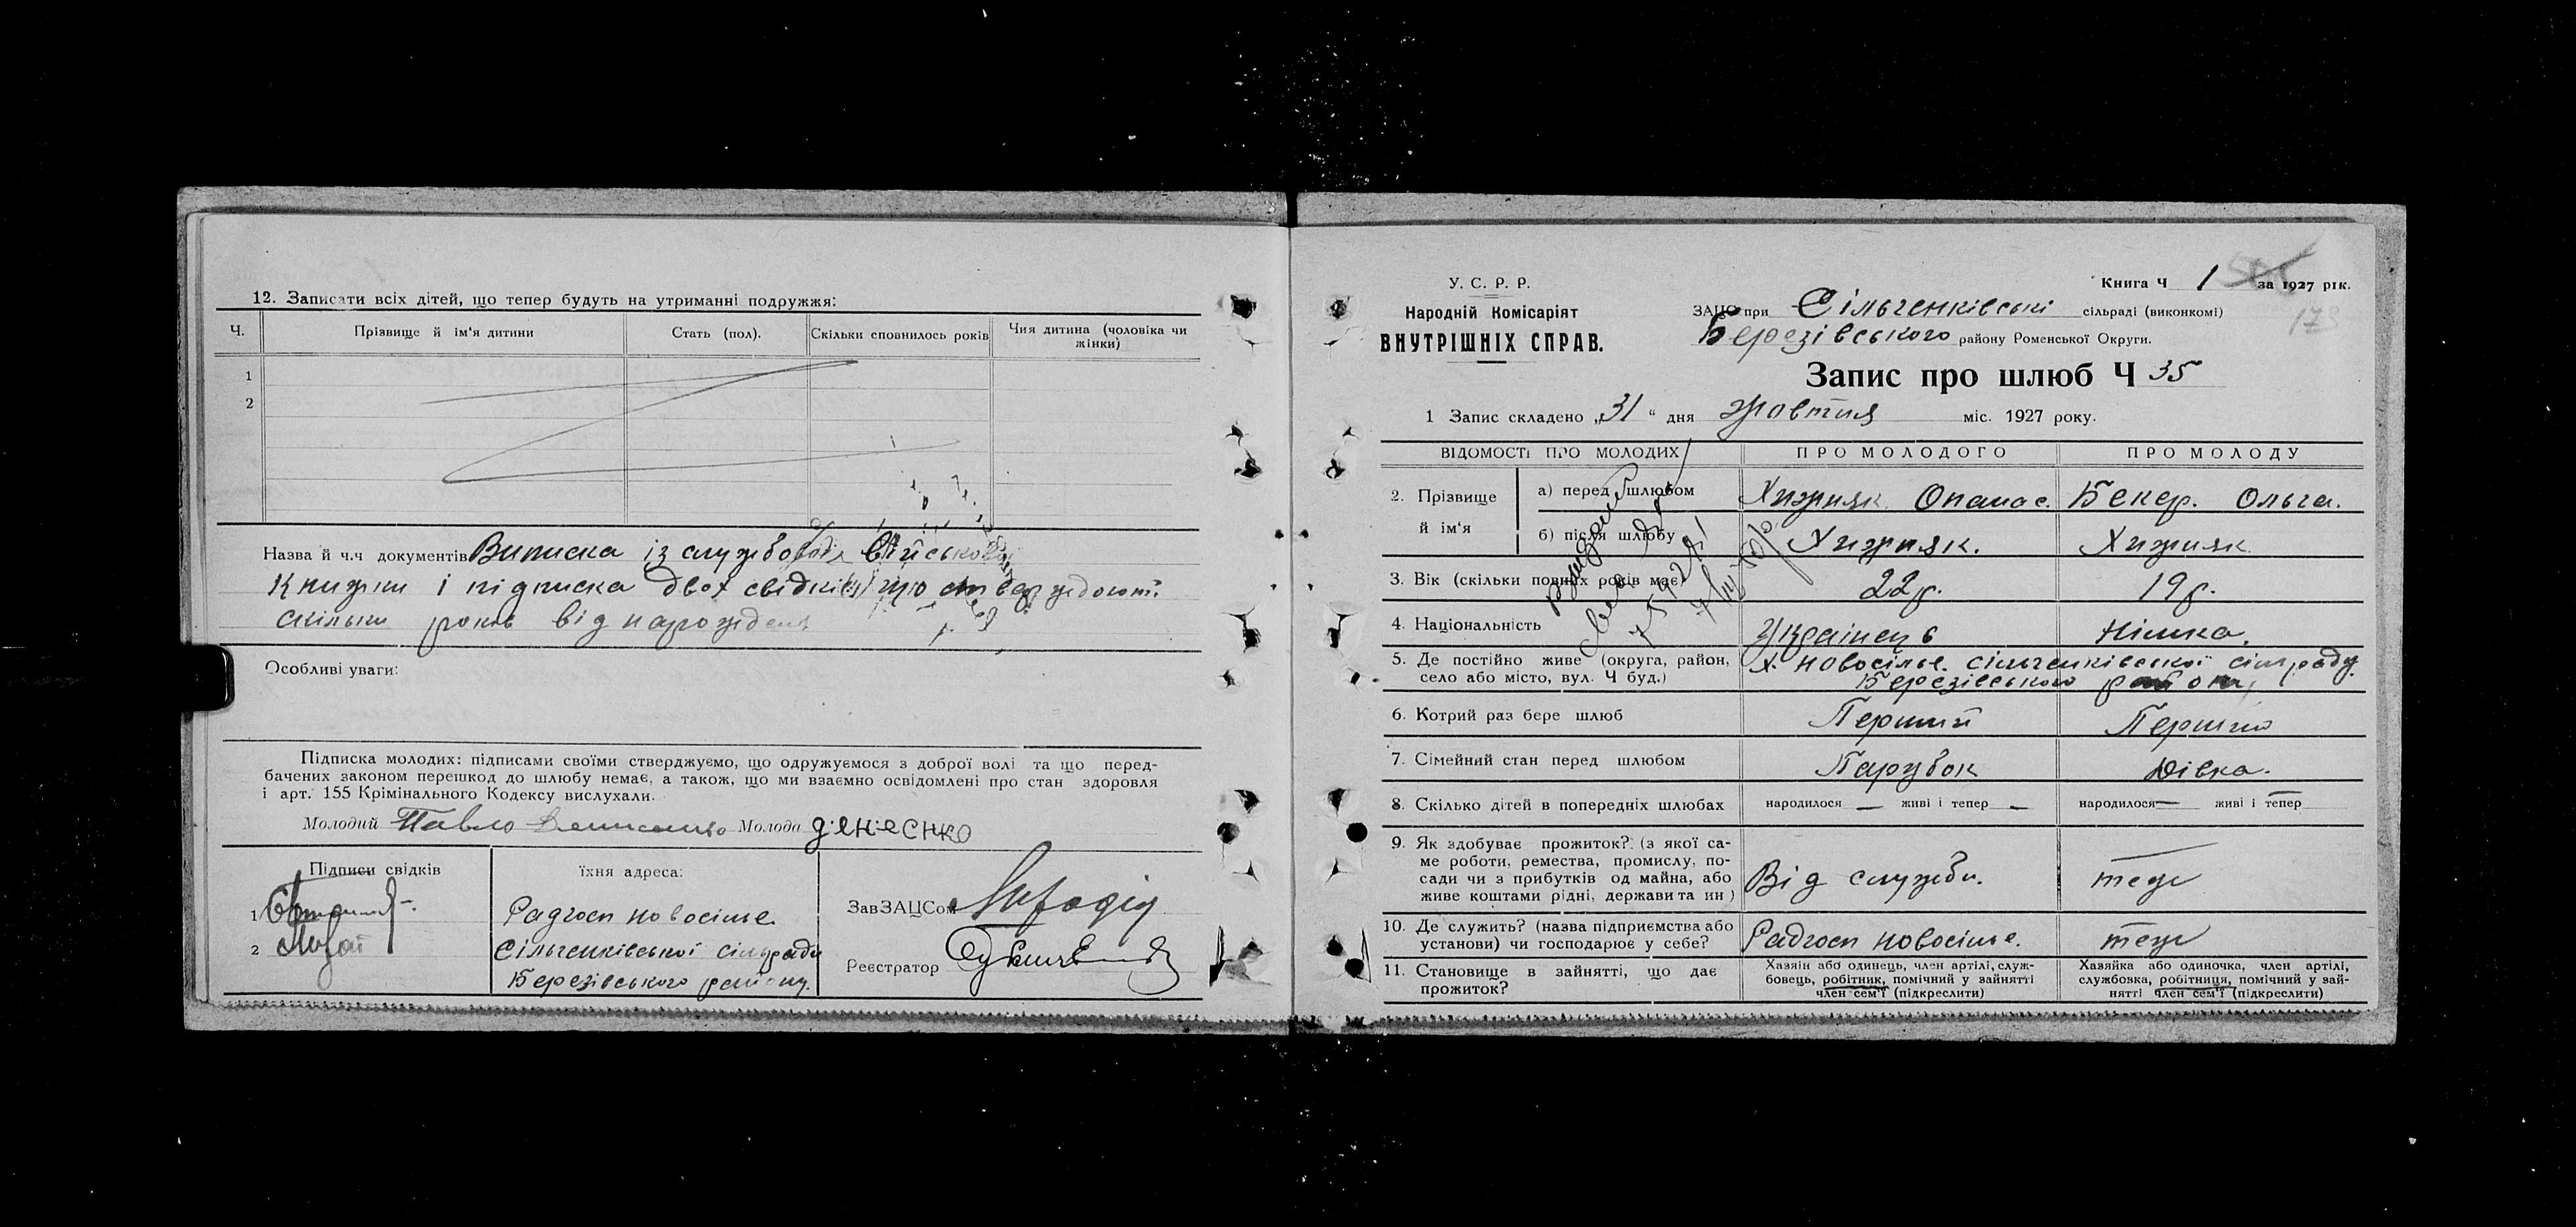 12. Записати всіх дітей, що тепер будуть на утриманні подружжя:
Ч. Прізвище й ім'я дитини Стать (пол). Скільки сповнилось років Чия дитина (чоловіка чи жінки)
1
2
Назва й ч.ч документів Виписка із військової
книжки і підписка двох свідків що
скільки років від народження
Особливі уваги:
Підписка молодих: підписами своїми стверджуємо, що одружуємося з доброї волі та що перед-
бачених законом перешкод до шлюбу немає, а також, що ми взаємно освідомлені про стан здоровля
і арт. 155 Крімінального Кодексу вислухали.
Молодий Павло Денисенко Молода
Підписи свідків їхня адреса:
1 Радгосп новосілля ЗавЗАЦСом
2 Сільченківської сільради
Березівського району. Реєстратор
У. С. Р. Р.
Народній Комісаріят
ВНУТРІШНІХ СПРАВ.
Книга Ч 1 за 1927 рік.
173
ЗАЦС при Сільченківські сільраді (виконкомі)
Березівського району Роменської Округи.
Запис про шлюб Ч 35
1 Запис складено „31" дня жовтня міс. 1927 року.
ВІДОМОСТІ ПРО МОЛОДИХ ПРО МОЛОДОГО ПРО МОЛОДУ
2. Прізвище й ім'я а) перед шлюбом Хижняк Опанас. Бекер. Ольга.
б) після шлюбу Хижняк. Хижняк
3. Вік (скільки повних років має) 22 р. 19 р.
4. Національність Українець Німка.
5. Де постійно живе (округа, район, х. новосілле. сільченківської сільради
село або місто, вул. Ч буд.) Березівського району
6. Котрий раз бере шлюб Перший Перший
7. Сімейний стан перед шлюбом Парубок Дівка.
8. Скілько дітей в попередніх шлюбах народилося — живі і тепер — народилося — живі і тепер —
9. Як здобуває прожиток? (з якої са-
ме роботи, ремества, промислу, по-
сади чи з прибутків од майна, або
живе коштами рідні, держави та ин) Від служби. теж
10. Де служить? (назва підприємства або
установи) чи господарює у себе? Радгосп новосілле. теж
11. Становище в зайнятті, що дає
прожиток?
Хазяїн або одинець, член артілі, служ-
бовець, робітник, помічний у зайнятті
член сем'ї (підкреслити)
Хазяйка або одиночка, член артілі,
службовка, робітниця, помічний у зай-
нятті член сем'ї (підкреслити)